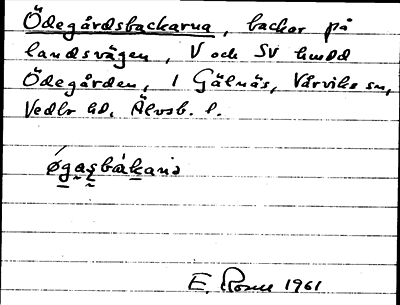 Ödegårdsbackarna, backar på
landsvägen, V och SV
Ödegården, 1 Gälnäs, Vårviks sn,
Vedbo hd, Älvsb. l.
øgasbakana
E. Rosell 1961